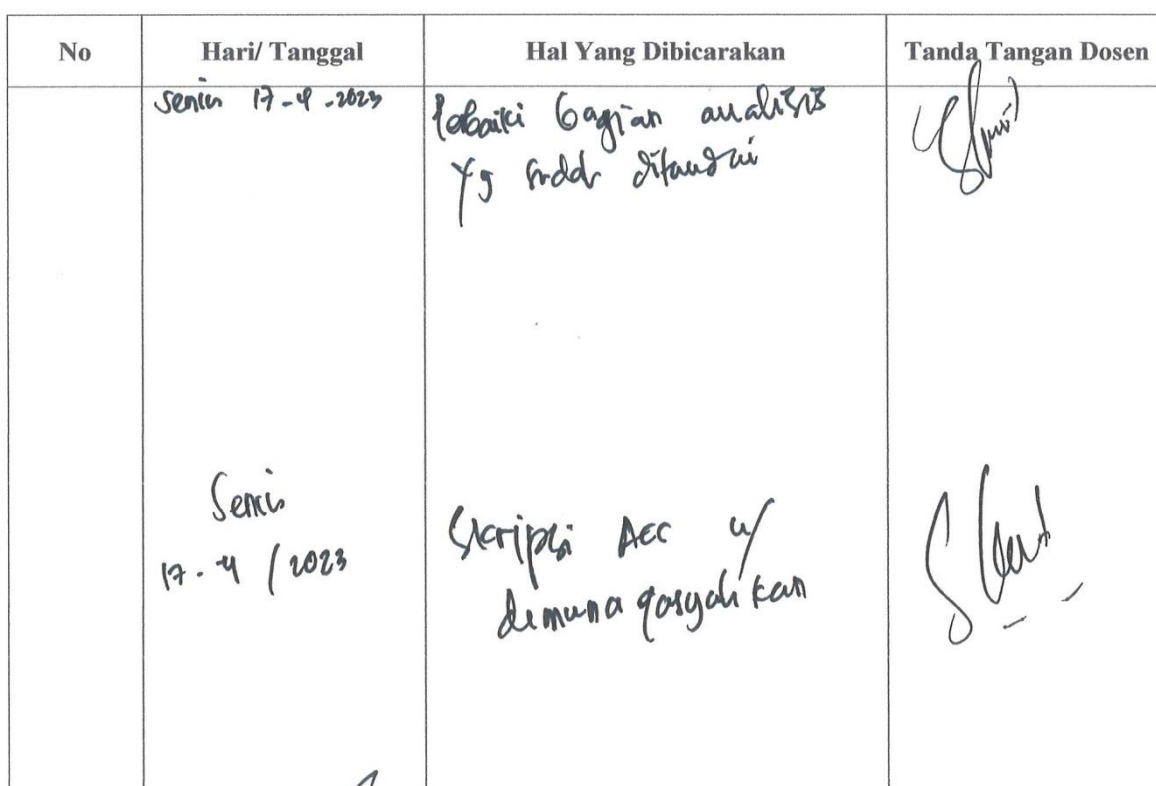 No Hari/ Tanggal Hal Yang Dibicarakan Tanda Tangan Dosen
Senin 17-4-2023 bagian analisis
yg ditandai
Senin
17-4/2023 Skripsi Acc u/
dimunaqasyahkan